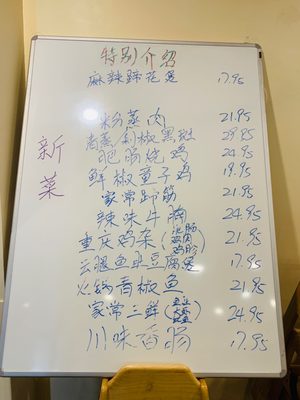 特别介绍
麻辣蹄花煲 17.95
新菜
粉蒸肉 21.95
老姜剁椒黑魚 29.95
肥肠烧鸡 24.95
鲜椒童子鸡 19.95
家常蹄筋 21.95
辣味牛腩 24.95
重庆鸡杂 ( ) 21.95
云腿鱼豆腐煲 17.95
火锅香椒鱼 21.95
家常三鲜 ( ) 24.95
川味香肠 17.95